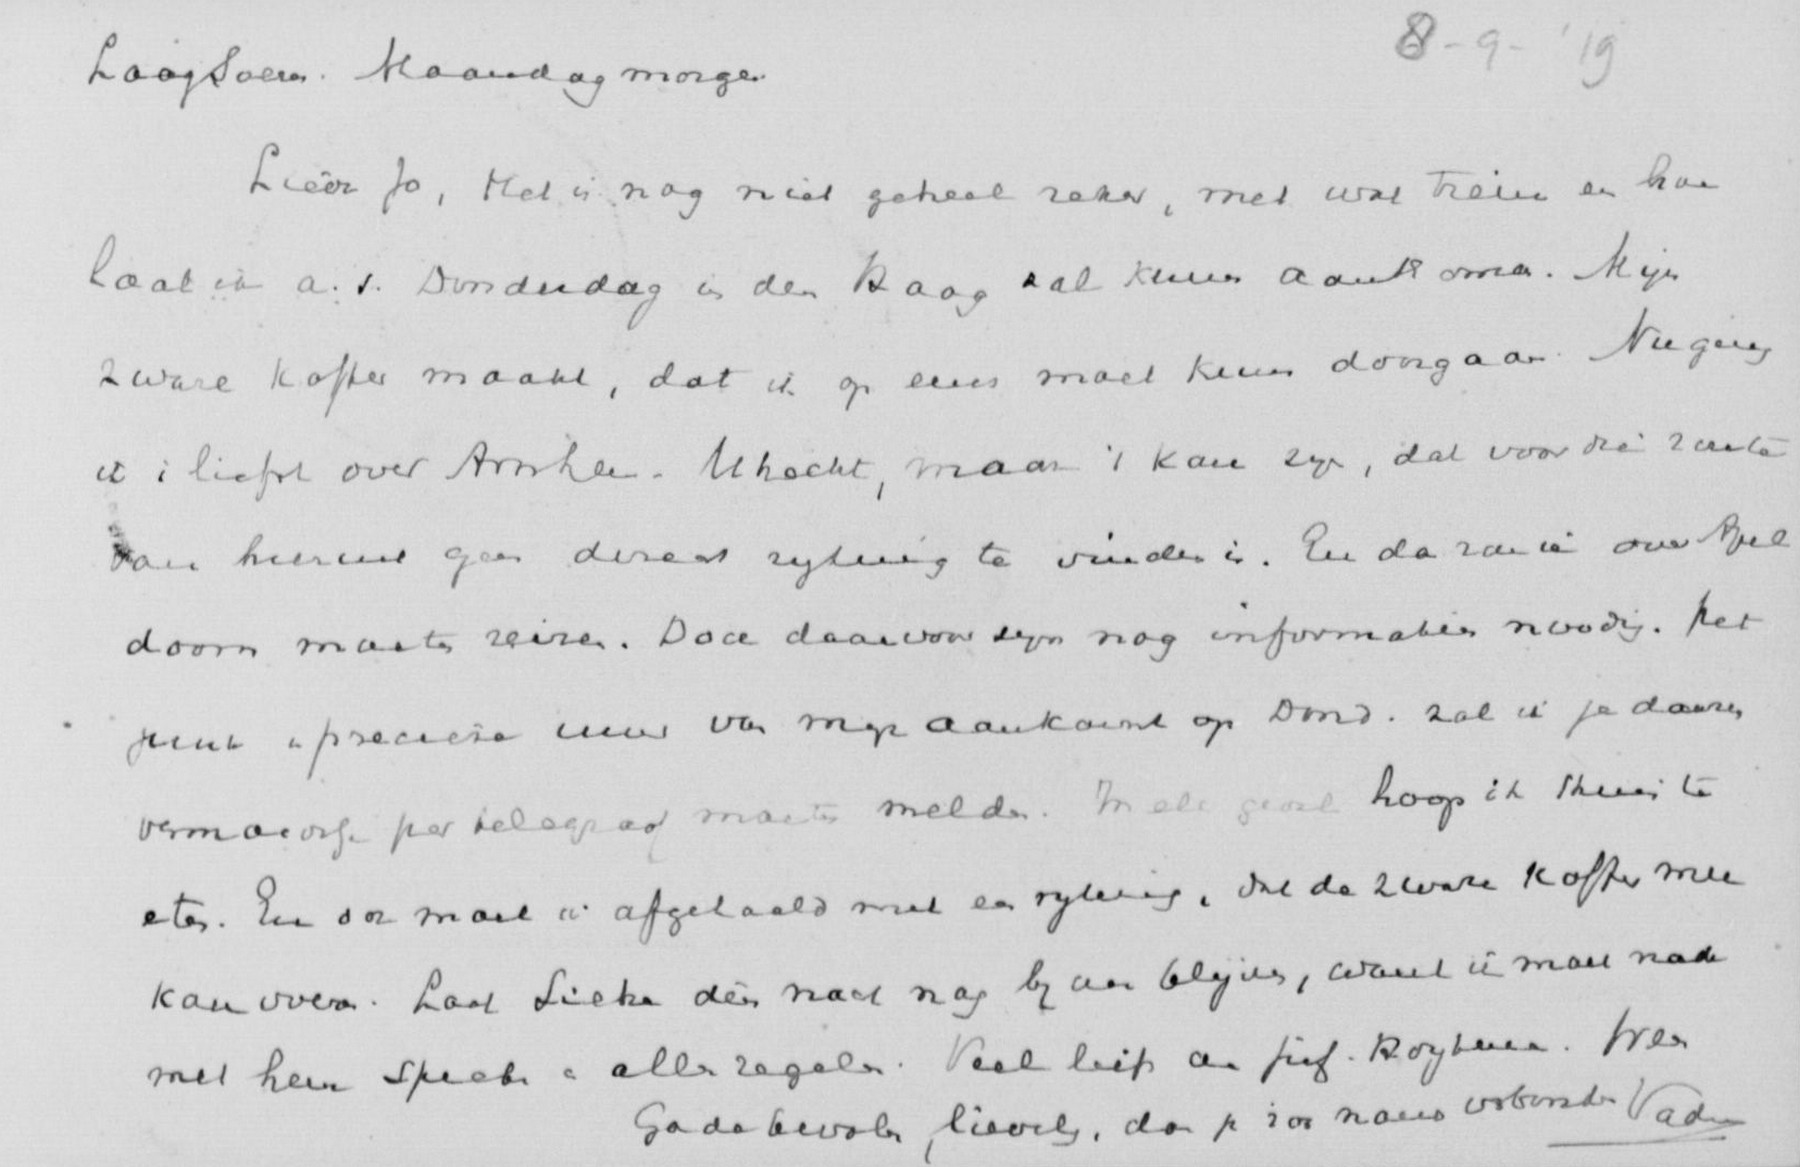 8-9-'19
Laag Soeren. Maandagmorgen
Lieve Jo, Het is nog niet geheel zeker, met wat trein en hoe
laat ik a.s. Donderdag in den Haag zal kunnen aankomen. Mijn
zware koffer maakt, dat ik op eens moet kunnen doorgaan. Nu ging
ik 't liefst over Arnhem-Utrecht, maar 't kan zijn, dat voor die route
van hieruit geen direct rijtuig te vinden is. En dan zou ik over Apel
doorn moeten reizen. Doch daarvoor zijn nog informaties noodig. Het
juiste precieze uur van mijn aankomst op Dond. zal ik je daarom
per telegraaf moeten melden. In elk geval hoop ik thuis te
eten. En dan moet ik afgehaald met een rijtuig, dat de zware koffer mee
kan voeren. Laat Lieke dien nacht nog bij blijven, want ik moet
met hem spreken en alles regelen. Veel liefs aan juf. Wees
Gode bevolen, lieveling, door je zoo nauw verbonden Vader